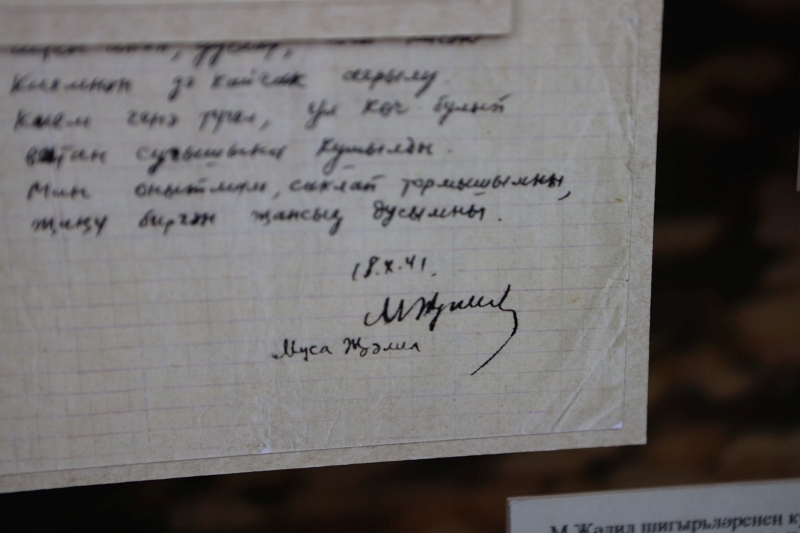 дуслар,
Киемнән дә кайчак аерылу.
Кием генә түгел, ул көч булып
ватан сугышына кушылды.
Мин онытмам, саклап тормышымны,
җиңү биргән җансыз дусымны.
18.X.41.
М Җәлил
Муса Җәлил
М.Җәлил шигырьләренең